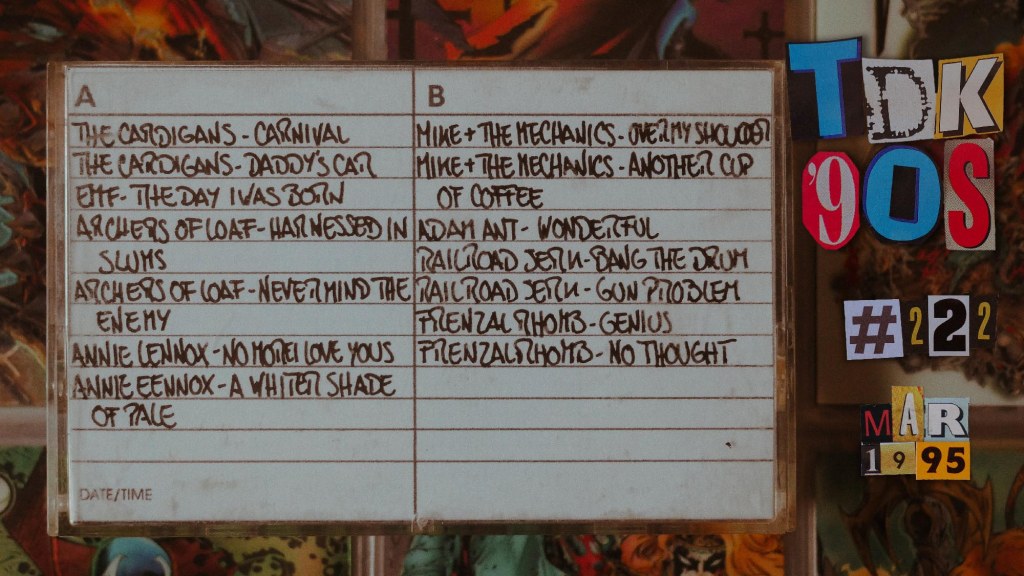 A
THE CARDIGANS - CARNIVAL
THE CARDIGANS - DADDY'S CAR
EMF - THE DAY I WAS BORN
ARCHERS OF LOAF - HARNESSED IN
SLUMS
ARCHERS OF LOAF - NEVERMIND THE
ENEMY
ANNIE LENNOX - NO MORE I LOVE YOUS
ANNIE EENNOX - A WHITER SHADE
OF PALE
DATE/TIME
B
MIKE + THE MECHANICS - OVER MY SHOULDER
MIKE + THE MECHANICS - ANOTHER CUP
OF COFFEE
ADAM ANT - WONDERFUL
RAILROAD JERK - BANG THE DRUM
RAILROAD JERK - GUN PROBLEM
FRENZAL RHOMB - GENIUS
FRENZAL RHOMB - NO THOUGHT
TDK
'90S
#222
MAR
1995